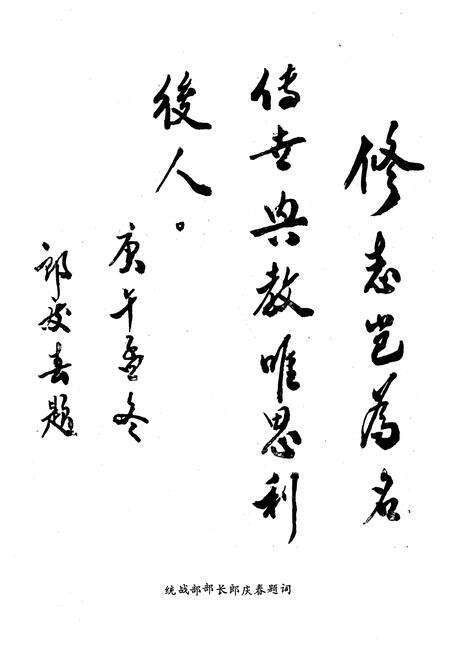 修志岂为名
传世典教唯思利
後人。
庚午孟冬
郎庆春题
统战部部长郎庆春题词